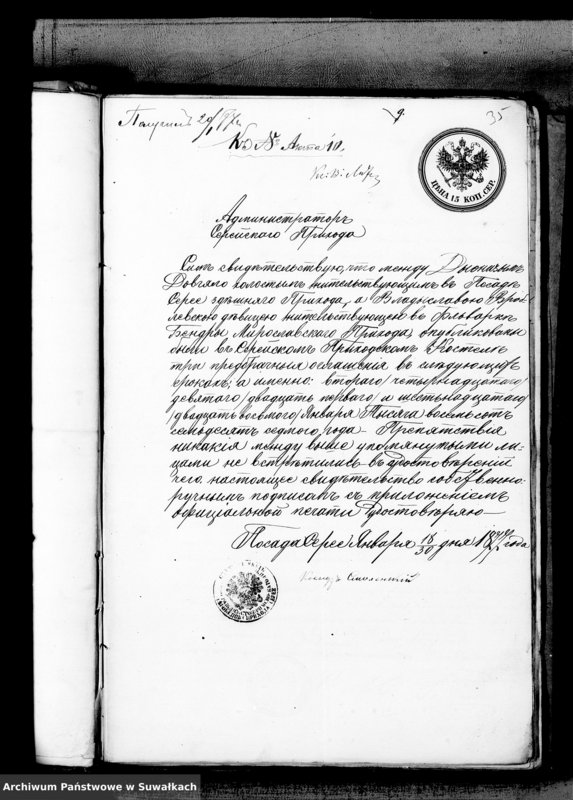 35
Къ № Акта 10.
ЦѢНА 15 КОП. СЕР.
Администраторъ
Серейскаго Прихода
Симъ свидѣтельствую, что между
Довгяло холостымъ жительствующимъ въ Посадѣ
Серее здѣшняго Прихода, а Владиславою Вроб
левскою дѣвицею жительствующею въ Фольваркѣ
Бендры Мирославскаго Прихода, опубликованы
были въ Серейскомъ Приходскомъ Костелѣ
три предбрачныя оглашенія въ слѣдующихъ
срокахъ, а именно: втораго /четырнадцатаго/
девятаго /двадцать перваго/ и шестьнадцатаго
/двадцать восьмаго/ Января Тысяча восемьсотъ
семьдесятъ седьмого года. Препятствія
никакія между выше упомянутыми ли-
цами не встрѣтились въ удостовѣреніи
чего настоящее свидѣтельство собственно-
ручнымъ подписомъ съ приложеніемъ
оффиціальной печати удостовѣряю
Посада Серее Января 18/30 дня 1877 года
Ксендзъ
Archiwum Państwowe w Suwałkach